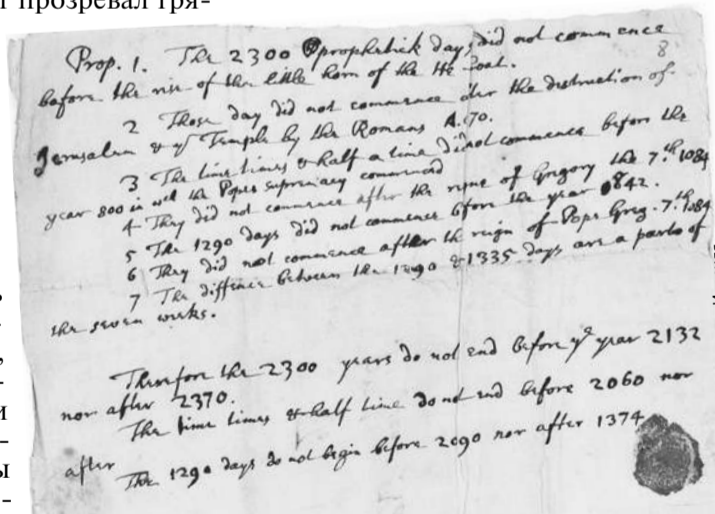 прозревал гря-
Prop. 1. The 2300 prophetick days did not commence
before the rise of the little horn of the He Goat.
8
2 Those day did not commence after the destruction of
Jerusalem & ye Temple by the Romans A. 70.
3 The time times & half a time did not commence before the
year 800 in wch the Popes supremacy commenced
4 They did not commence after the reigne of Gregory the 7.th 1084
5 The 1290 days did not commence before the year 842.
6 They did not commence after the reign of Pope Greg. 7.th 1084
7 The diffence between the 1290 & 1335 days are a parts of
the seven weeks.
Therefore the 2300 years do not end before ye year 2132
nor after 2370.
The time times & half time do not end before 2060 nor
after
The 1290 days do not begin before 2090 nor after 1374